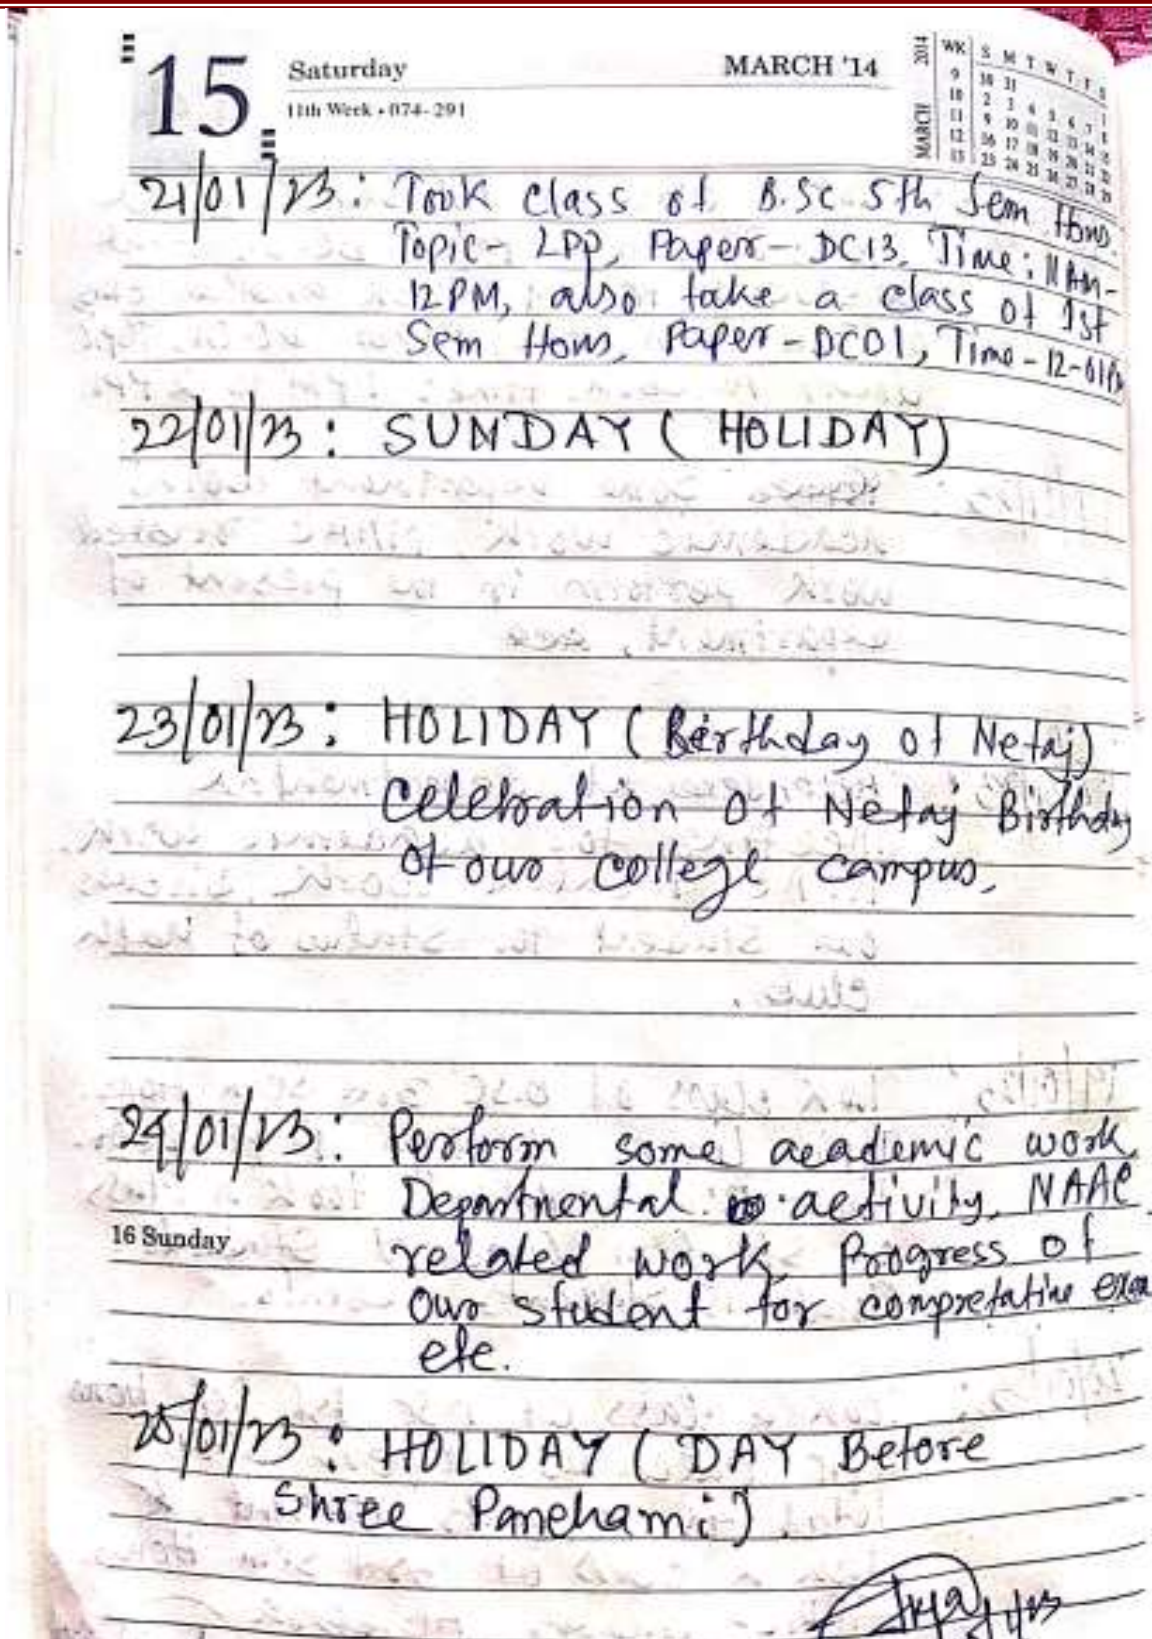 15
Saturday
MARCH '14
11th Week • 074-291
2014
MARCH
WK S M T W T F S
9 30 31 1
10 2 3 4 5 6 7 8
11 9 10 11 12 13 14 15
12 16 17 18 19 20 21 22
13 23 24 25 26 27 28 29
21/01/23: Took class of B.Sc 5th Sem Hons.
Topic- LPP, Paper- DC13, Time: 11AM-
12PM, also take a class of 1st
Sem Hons, Paper-DC01, Time-12-01PM
22/01/23: SUNDAY (HOLIDAY)
23/01/23: HOLIDAY (Birthday of Netaj)
Celebration of Netaj Birthday
of our college campus,
24/01/23: Perform some academic work,
Departmental activity, NAAC
16 Sunday
related work, Progress of
our student for compretative exam
etc.
25/01/23: HOLIDAY (DAY Before
Shree Panchami)